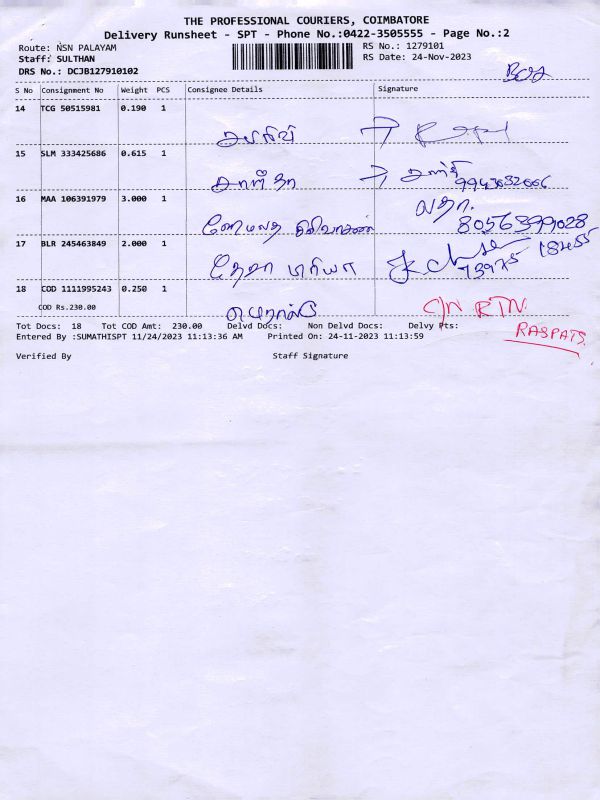 THE PROFESSIONAL COURIERS, COIMBATORE
Delivery Runsheet - SPT - Phone No.:0422-3505555 - Page No.:2
Route: NSN PALAYAM
RS No.: 1279101
Staff: SULTHAN
RS Date: 24-Nov-2023
DRS No.: DCJB127910102
S No Consignment No Weight PCS Consignee Details Signature
14 TCG 50515981 0.190 1
15 SLM 333425686 0.615 1
9943632666
16 MAA 106391979 3.000 1 லதா.
8056399028
17 BLR 245463849 2.000 1
73975 18455
18 COD 1111995243 0.250 1
COD Rs.230.00
C/N RTN.
Tot Docs: 18 Tot COD Amt: 230.00 Delvd Docs: Non Delvd Docs: Delvy Pts:
RASPATS.
Entered By :SUMATHISPT 11/24/2023 11:13:36 AM Printed On: 24-11-2023 11:13:59
Verified By Staff Signature